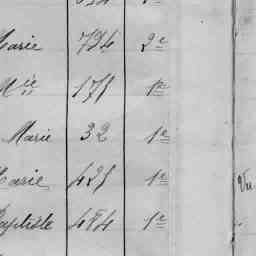 Marie 734 2e
Mie 175 1re
Marie 32 1e
Marie 425 1e
Baptiste 484 1e